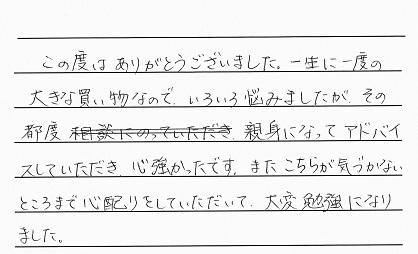 この度は ありがとうございました。一生に一度の
大きな買い物なので、いろいろ悩みましたが、その
都度 相談にのっていただき 親身になって アドバイ
スしていただき、心強かったです。また こちらが気づかない
ところまで心配りをしていただいて、大変勉強になり
ました。